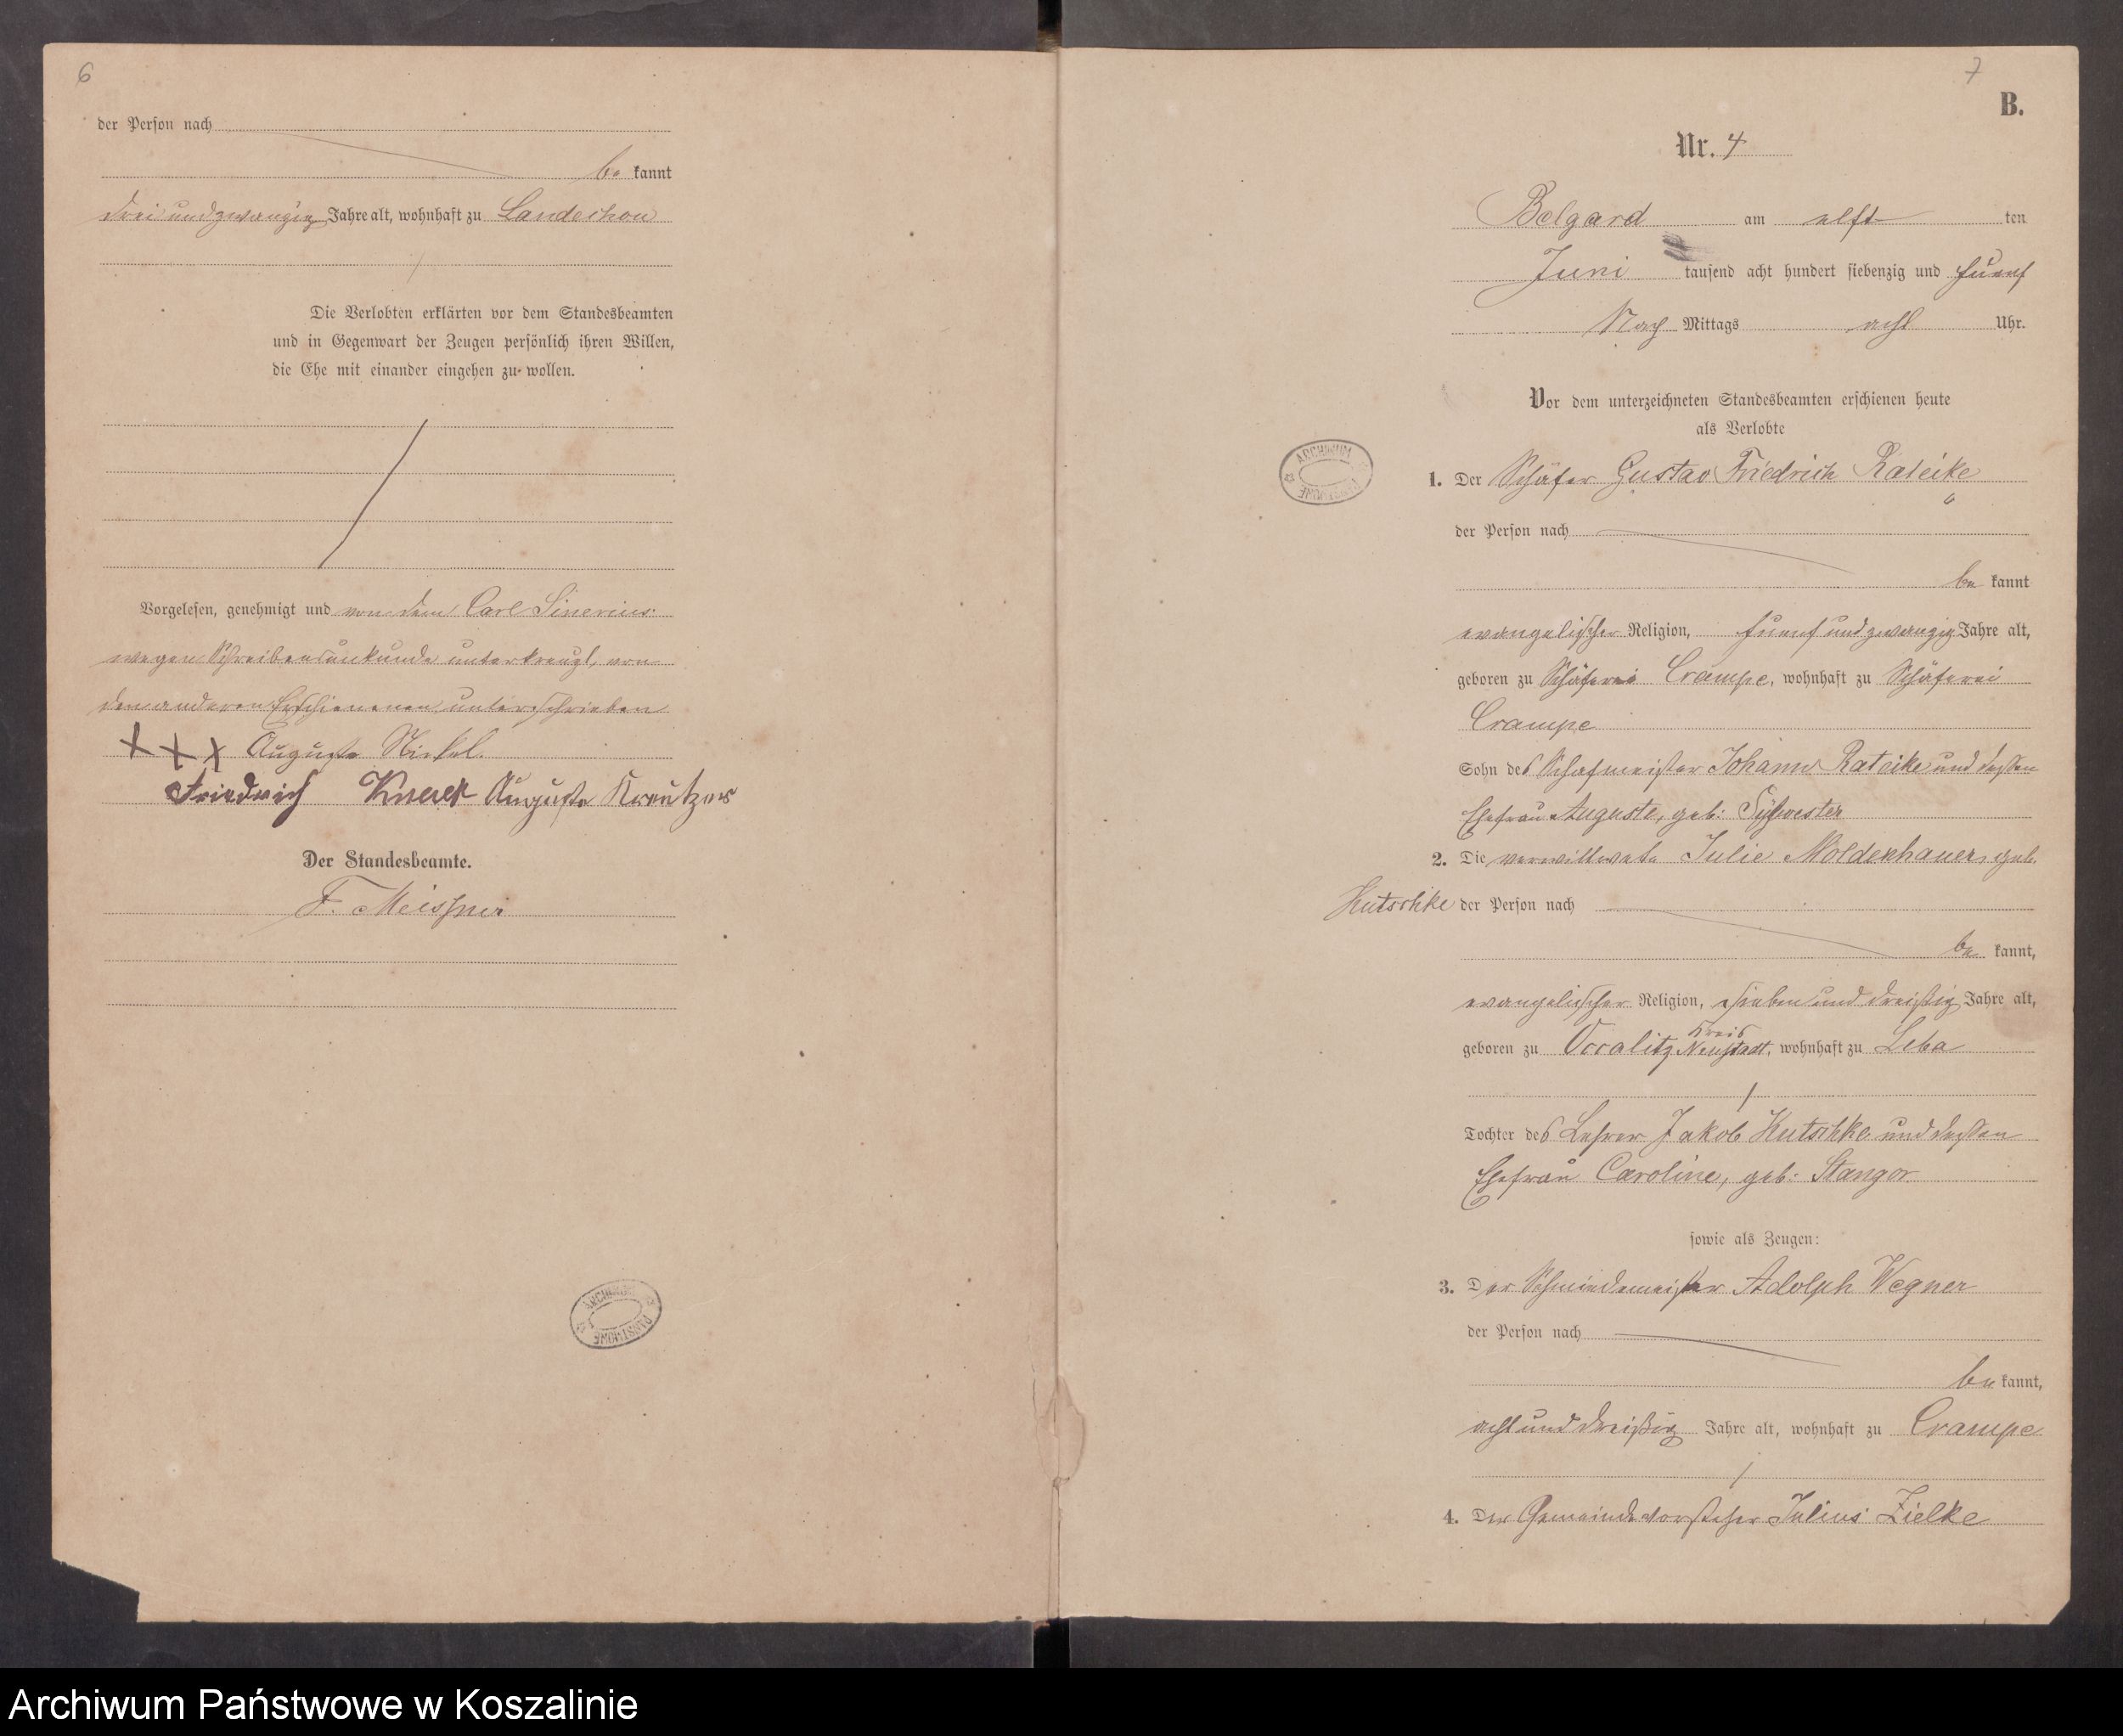 6
der Person nach
be kannt
drei und zwanzig Jahre alt, wohnhaft zu Landechow
Die Verlobten erklärten vor dem Standesbeamten
und in Gegenwart der Zeugen persönlich ihren Willen,
die Ehe mit einander eingehen zu wollen.
Vorgelesen, genehmigt und von dem Carl Sinerius
wegen Schreibensunkunde unterkreuzt, von
den anderen Erschienenen unterschrieben
+ + + Auguste Nickel.
Friedrich Auguste Kreutzer
Der Standesbeamte.
F. Meissner
ARCHIWUM PAŃSTWOWE
7
B.
Nr. 4
Belgard am elft ten
Juni tausend acht hundert siebenzig und fuenf
Nach Mittags acht Uhr.
Vor dem unterzeichneten Standesbeamten erschienen heute
als Verlobte
1. Der Schäfer Gustav Friedrich Rateike
der Person nach
be kannt
evangelischer Religion, fuenf und zwanzig Jahre alt,
geboren zu Schäferei Crampe, wohnhaft zu Schäferei
Crampe
Sohn des Schafmeister Johann Rateike und dessen
Ehefrau Auguste, geb: Sylwester
2. Die verwittwete Julie Moldenhauer, geb.
Kutschke der Person nach
be kannt,
evangelischer Religion, sieben und dreißig Jahre alt,
Kreis
geboren zu Occalitz Neustadt, wohnhaft zu Leba
Tochter des Lehrer Jakob Kutschke und dessen
Ehefrau Caroline, geb: Stangor
sowie als Zeugen:
3. Der Schmiedemeister Adolph Wegner
der Person nach
be kannt,
acht und dreißig Jahre alt, wohnhaft zu Crampe
4. Der Gemeindevorsteher Julius Zielke
ARCHIWUM PAŃSTWOWE
Archiwum Państwowe w Koszalinie